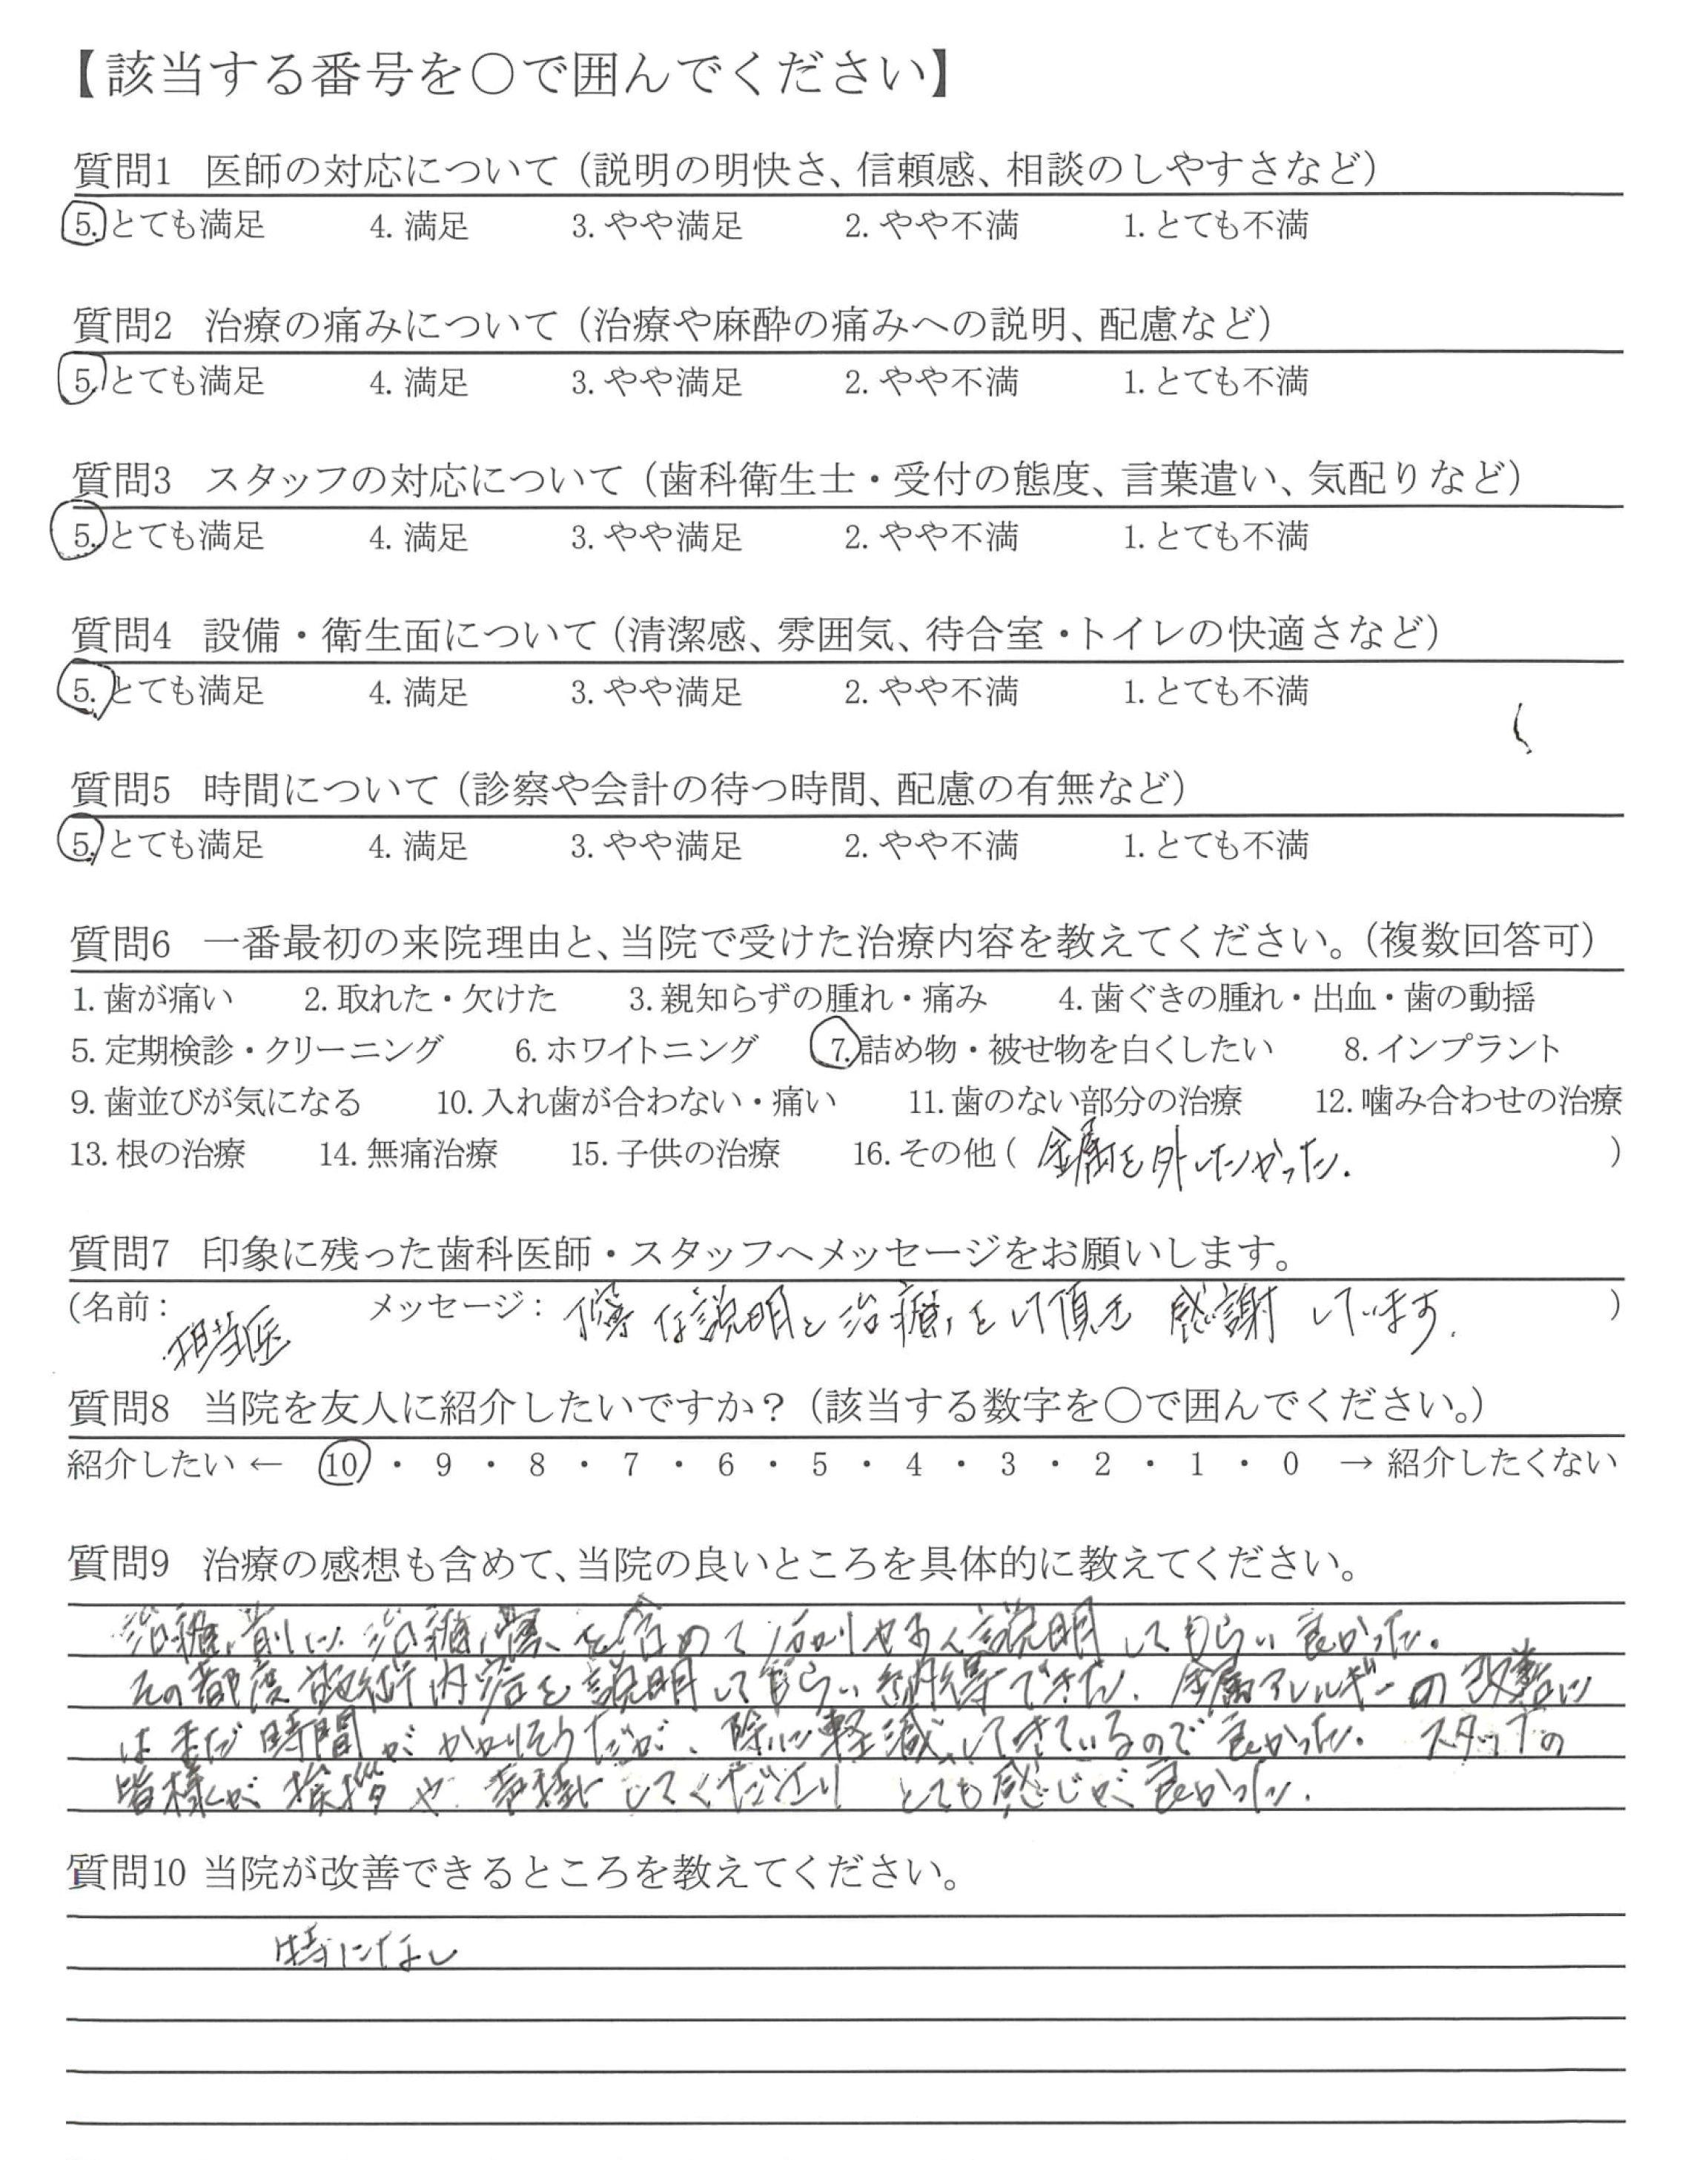 【該当する番号を〇で囲んでください】
質問1 医師の対応について（説明の明快さ、信頼感、相談のしやすさなど）
5. とても満足 4. 満足 3. やや満足 2. やや不満 1. とても不満
質問2 治療の痛みについて（治療や麻酔の痛みへの説明、配慮など）
5. とても満足 4. 満足 3. やや満足 2. やや不満 1. とても不満
質問3 スタッフの対応について（歯科衛生士・受付の態度、言葉遣い、気配りなど）
5. とても満足 4. 満足 3. やや満足 2. やや不満 1. とても不満
質問4 設備・衛生面について（清潔感、雰囲気、待合室・トイレの快適さなど）
5. とても満足 4. 満足 3. やや満足 2. やや不満 1. とても不満
質問5 時間について（診察や会計の待つ時間、配慮の有無など）
5. とても満足 4. 満足 3. やや満足 2. やや不満 1. とても不満
質問6 一番最初の来院理由と、当院で受けた治療内容を教えてください。（複数回答可）
1. 歯が痛い 2. 取れた・欠けた 3. 親知らずの腫れ・痛み 4. 歯ぐきの腫れ・出血・歯の動揺
5. 定期検診・クリーニング 6. ホワイトニング 7. 詰め物・被せ物を白くしたい 8. インプラント
9. 歯並びが気になる 10. 入れ歯が合わない・痛い 11. 歯のない部分の治療 12. 噛み合わせの治療
13. 根の治療 14. 無痛治療 15. 子供の治療 16. その他（ 金属を外したかった. ）
質問7 印象に残った歯科医師・スタッフへメッセージをお願いします。
（名前： 担当医 メッセージ： な説明と治療をして頂き 感謝しています. ）
質問8 当院を友人に紹介したいですか？（該当する数字を〇で囲んでください。）
紹介したい ← 10 ・ 9 ・ 8 ・ 7 ・ 6 ・ 5 ・ 4 ・ 3 ・ 2 ・ 1 ・ 0 → 紹介したくない
質問9 治療の感想も含めて、当院の良いところを具体的に教えてください。
治療前に 治療 を含めて 分かりやすく説明してもらい良かった.
その都度施術内容を説明してもらい納得できた. 金属アレルギーの改善に
はまだ時間がかかりそうだが、 に軽減してきているので良かった. スタッフの
皆様が挨拶や してくださり とても感じが良かった.
質問10 当院が改善できるところを教えてください。
特になし